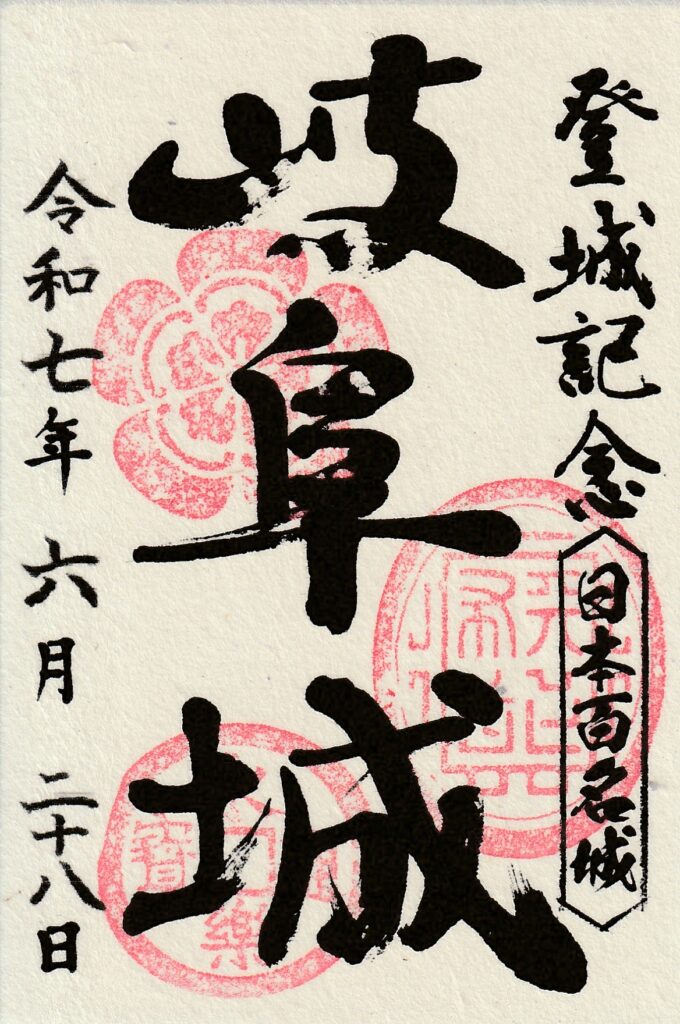 登城記念
日本百名城
岐阜城
令和七年 六月 二十八日